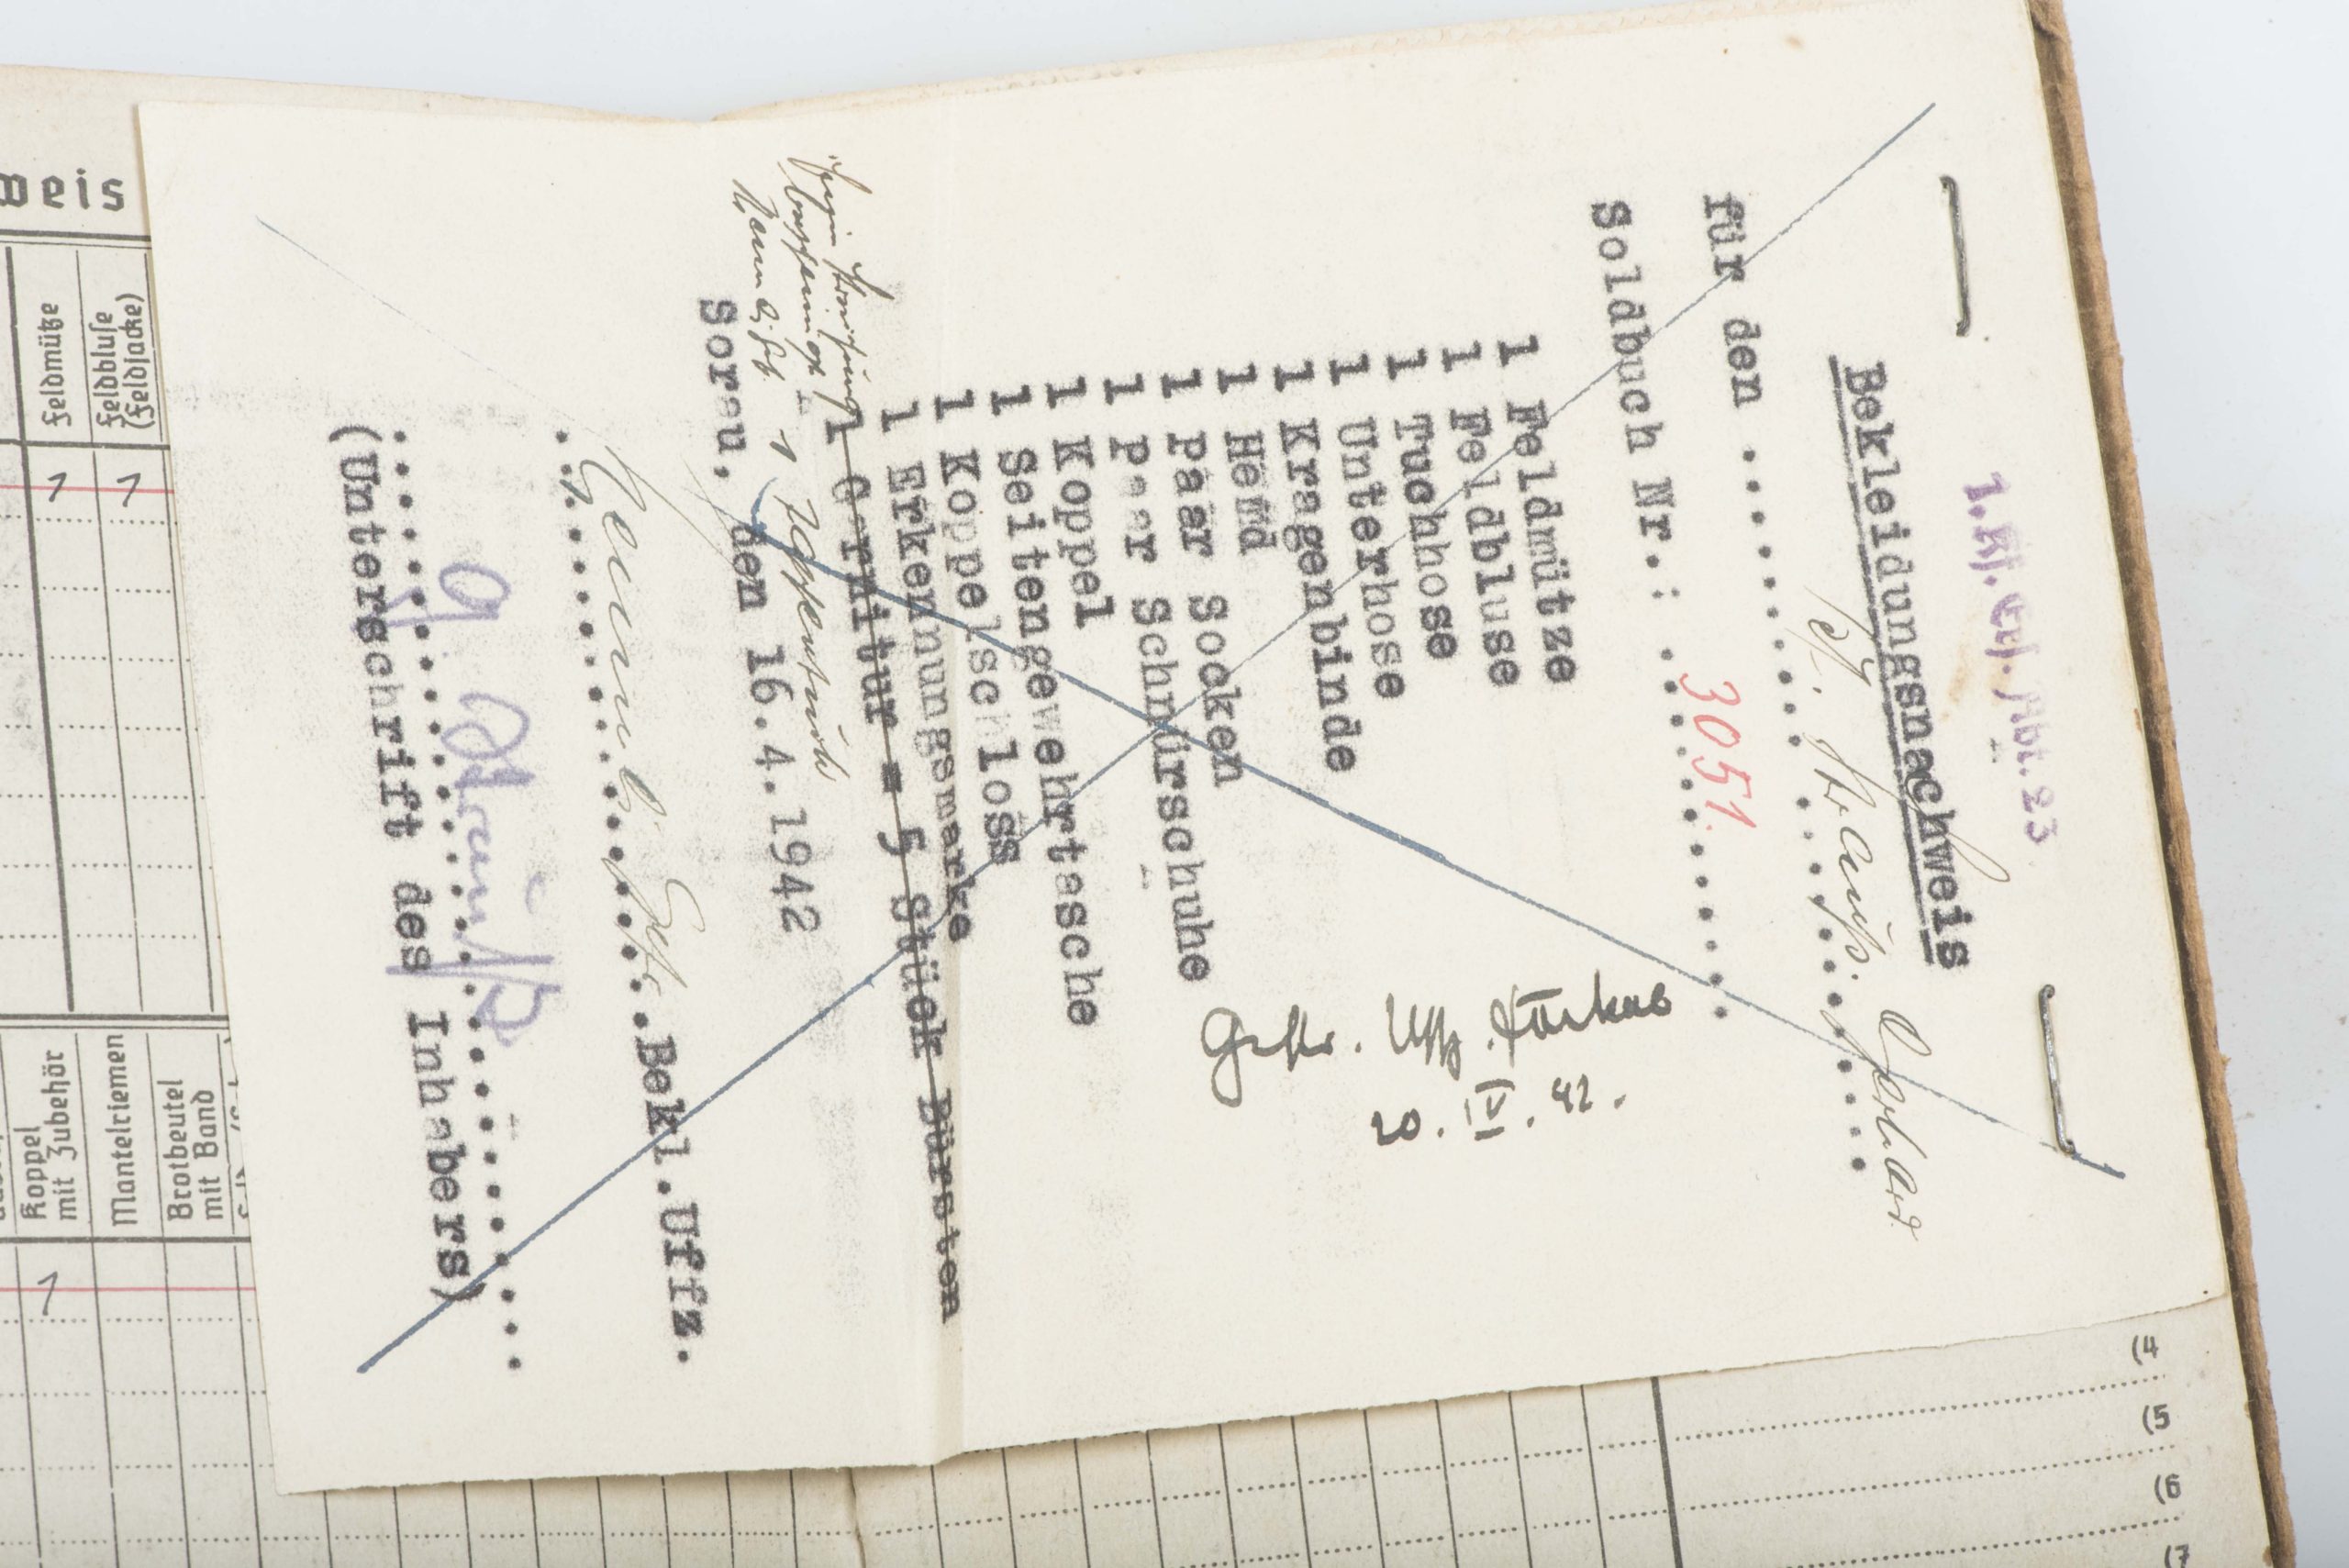 1.Kf. Ers. Abt. 23
Bekleidungsnachweis
für den ..... Strauß. Gerhard
Soldbuch Nr.: ..3051.....
1 Feldmütze
1 Feldbluse
1 Tuchhose
1 Unterhose
1 Kragenbinde
1 Hemd
1 Paar Socken
1 Paar Schnürschuhe
1 Koppel
1 Seitengewehrtasche
1 Koppelschloss
1 Erkennungsmarke
1 Garnitur = 5 Stück Bürsten
1
Sorau, den 16.4.1942
Bekl.Uffz.
G Strauß
(Unterschrift des Inhabers)
Gefr. Uffz.
20. IV. 42.
weis
Feldmütze
Feldbluse
(Feldjacke)
1
1
Koppel
mit Zubehör
Mantelriemen
Brotbeutel
mit Band
1
(4
(5
(6
(7